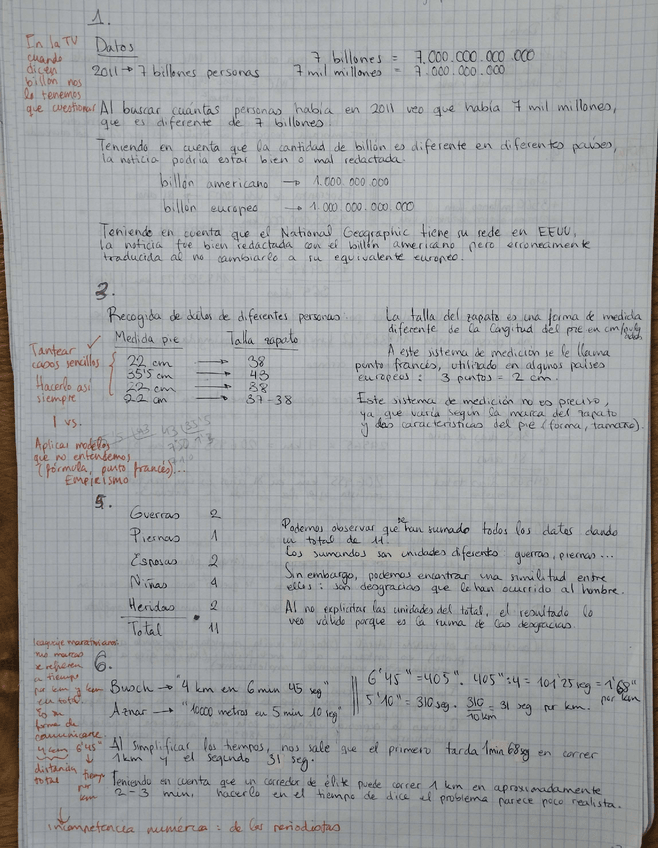 1.
En la TV
cuando
dicen
billón nos
lo tenemos
que cuestionar
Datos
2011 → 7 billones personas
7 billones = 7.000.000.000.000
7 mil millones = 7.000.000.000
Al buscar cuántas personas había en 2011 veo que había 7 mil millones,
que es diferente de 7 billones.
Teniendo en cuenta que la cantidad de billón es diferente en diferentes países,
la noticia podría estar bien o mal redactada.
billón americano → 1.000.000.000
billón europeo → 1.000.000.000.000
Teniendo en cuenta que el National Geographic tiene su sede en EEUU,
la noticia fue bien redactada con el billón americano pero erróneamente
traducida al no cambiarlo a su equivalente europeo.
3.
Recogida de datos de diferentes personas
Medida pie Talla zapato
22 cm → 38
35'5 cm → 43
22 cm → 38
22 cm → 37-38
Tantear
casos sencillos
Hacerlo así
siempre
vs.
Aplicar modelos
que no entendemos
(fórmula, punto francés)...
Empirismo
La talla del zapato es una forma de medida
diferente de la longitud del pie en cm/
A este sistema de medición se le llama
punto francés, utilizado en algunos países
europeos: 3 puntos = 2 cm.
Este sistema de medición no es preciso,
ya que varía según la marca del zapato
y las características del pie (forma, tamaño).
5.
Guerras 2
Piernas 1
Esposas 2
Niñas 4
Heridas 2
Total 11
Podemos observar que se han sumado todos los datos dando
un total de 11.
Los sumandos son unidades diferente: guerras, piernas...
Sin embargo, podemos encontrar una similitud entre
ellos: son desgracias que le han ocurrido al hombre.
Al no explicitar las unidades del total, el resultado lo
veo válido porque es la suma de las desgracias.
6.
no marcas
se refieren
a tiempo
por km y km
en total.
forma de
comunicarse
4 km 6'45"
distancia tiempo
total por
km
Busch → "4 km en 6 min 45 seg"
Aznar → "10000 metros en 5 min 10 seg"
6'45" = 405". 405":4 = 101'25 seg = 1'68"
por km
5'10" = 310 seg. 310/10km = 31 seg por km.
Al simplificar los tiempos, nos sale que el primero tarda 1 min 68 seg en correr
1 km y el segundo 31 seg.
Teniendo en cuenta que un corredor de élite puede correr 1 km en aproximadamente
2-3 min, hacerlo en el tiempo de dice el problema parece poco realista.
incompetencia numérica: de los periodistas